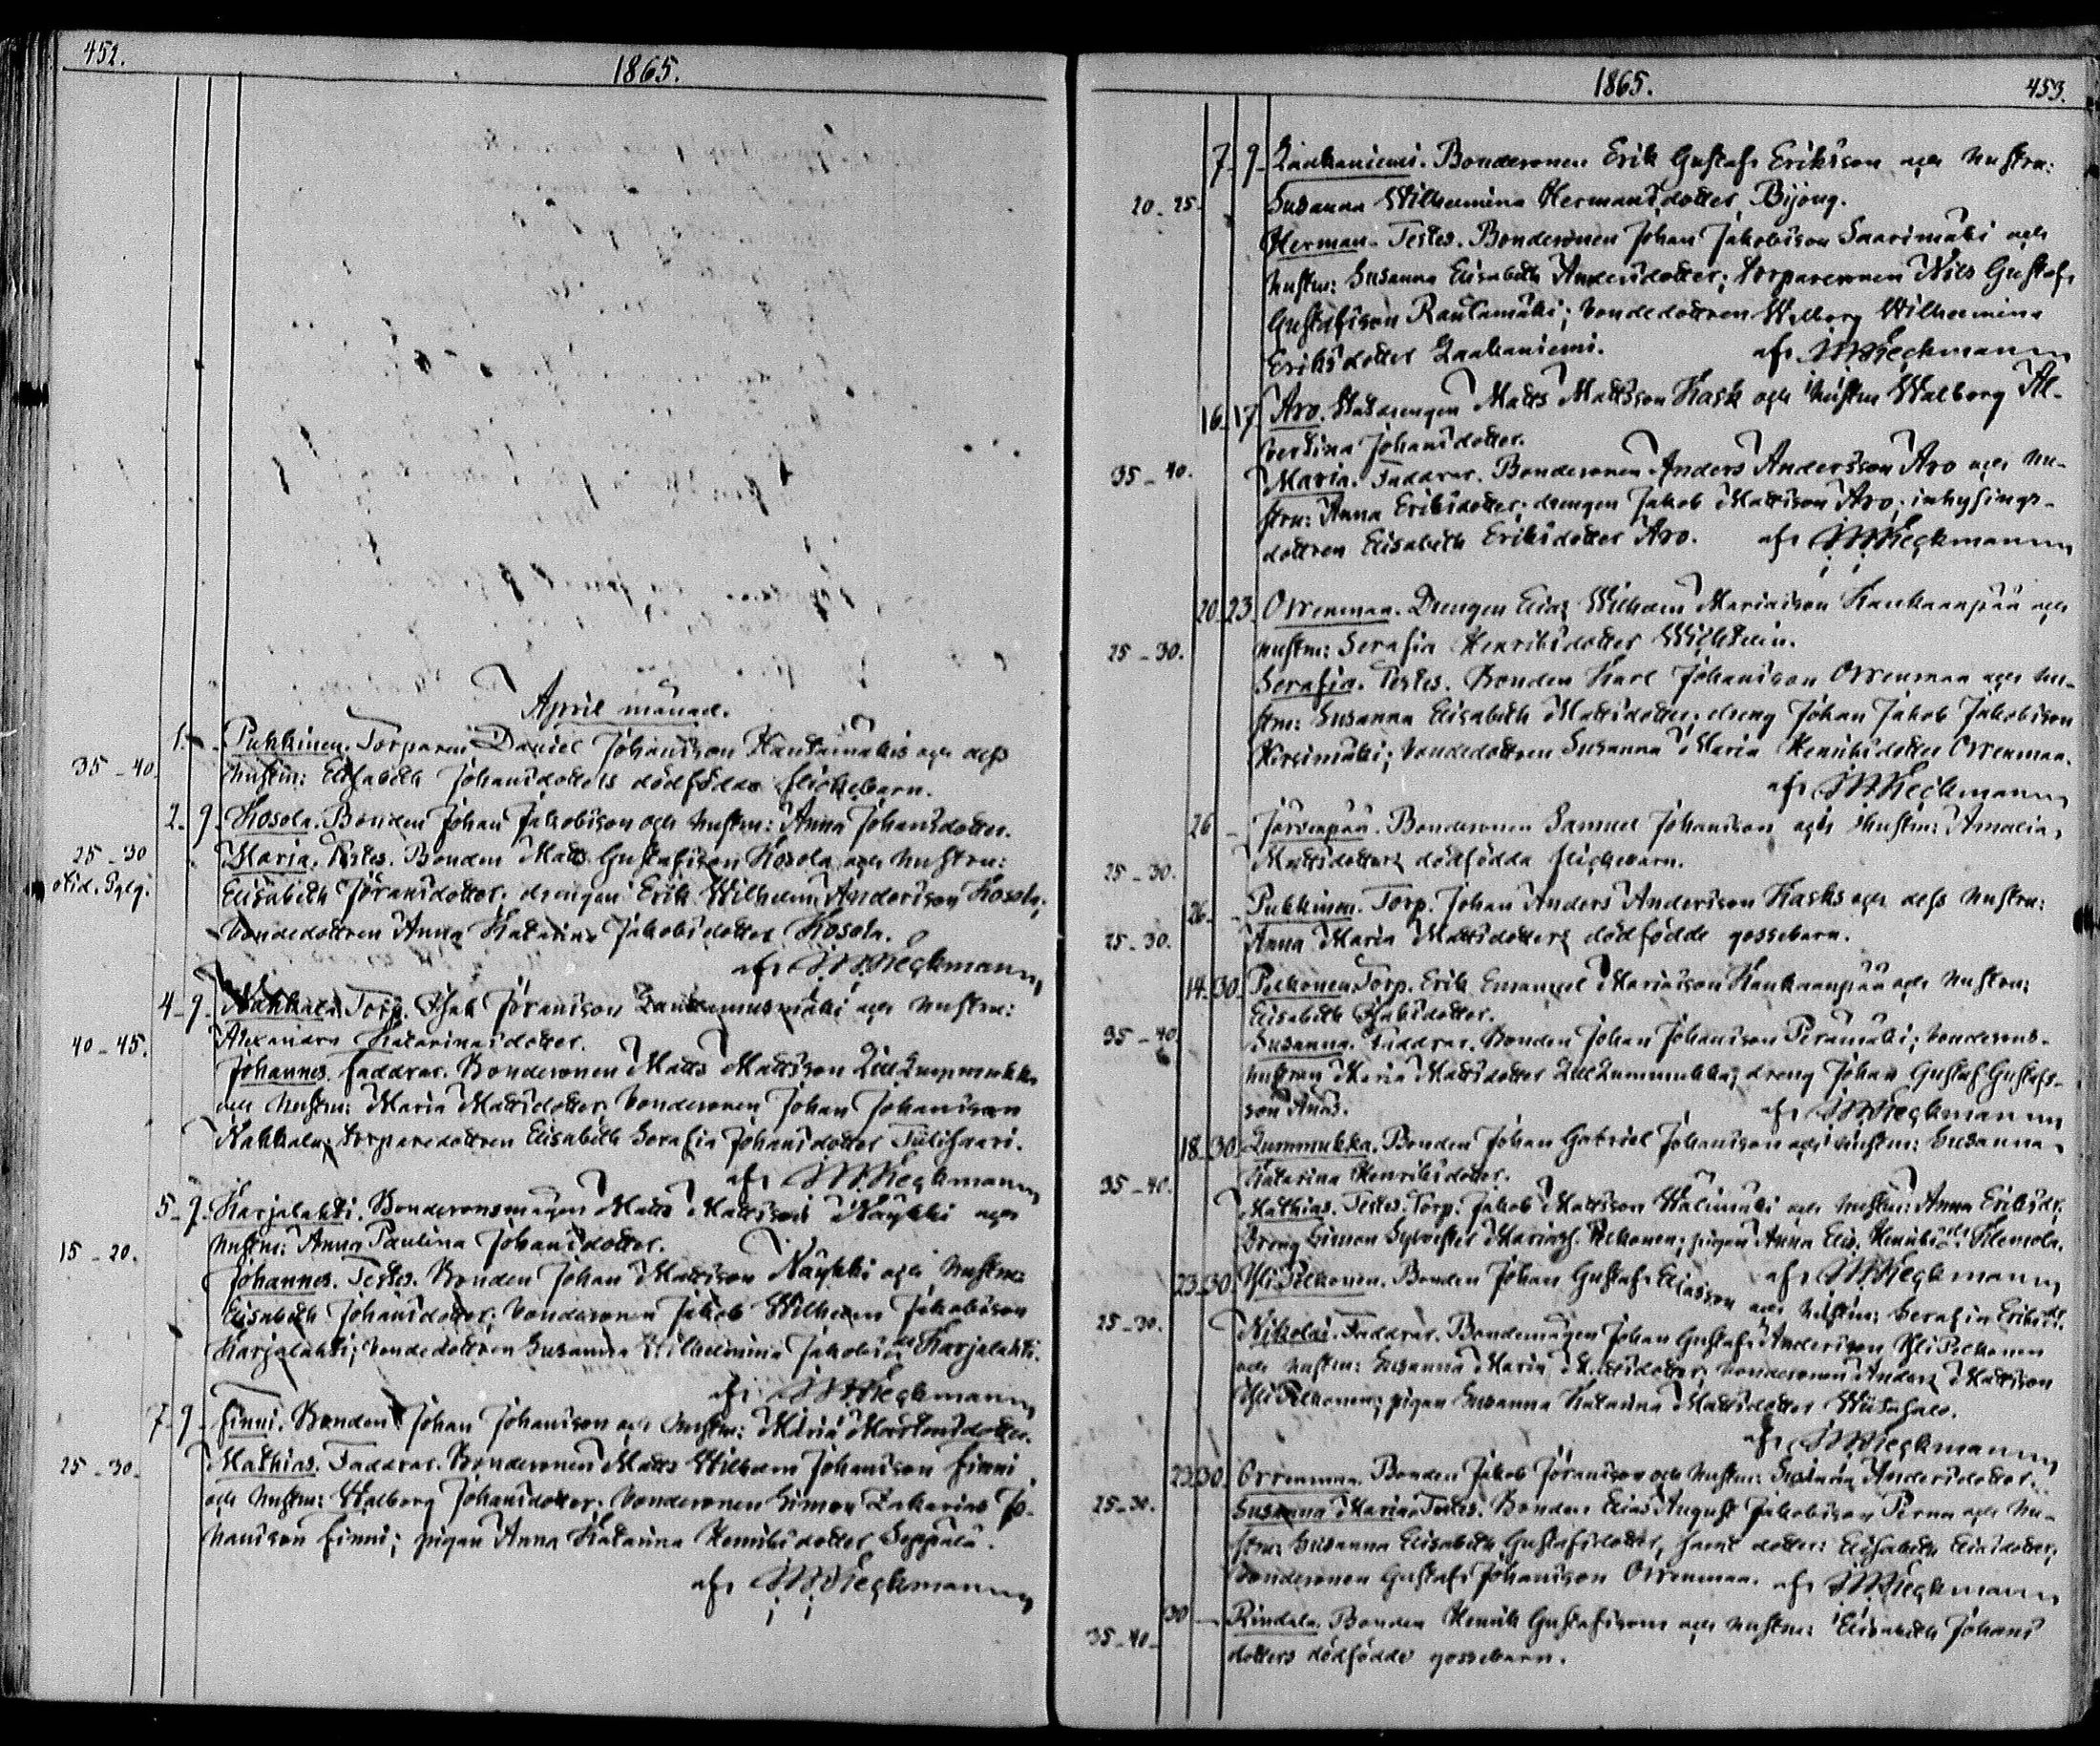 452.
1865.
April månad.
1. Pukkinen. Torparen Daniel Johansson Kautamäkis och dess
35-40. hustru: Elisabeth Johansdotters dödfödda flickebarn.
2. 9. Kosola. Bonden Johan Jakobsson och hustru: Anna Johansdotter.
25-30 Maria. Testes. Bonden Matts Gustafsson Kosola och hustru:
Elisabeth Jöransdotter; drengen Erik Wilhelm Andersson Kosola;
bondedottren Anna Katarina Jakobsdotter Kosola.
af: Heckmann
4-9. Torp. Isak Jöransson och hustru:
40-45. Alexandra Katarinasdotter.
Johannes. Faddrar. Bondesonen Matts Mattsson
och hustru: Maria Mattsdotter; bondesonen Johan Johansson
torparedottren Elisabeth Serafia Johansdotter Tulisaari.
af: Heckmann
5-9. Karjalahti. Bondesonsmågen Matts Mattsson Näykki och
15-20. hustru: Anna Paulina Johansdotter.
Johannes. Testes. Bonden Johan Mattsson Näykki och hustru:
Elisabeth Johansdotter; bondesonen Jakob Wilhelm Jakobsson
Karjalahti; bondedottren Susanna Wilhelmina Jakobsdr Karjalahti.
af: Heckmann
7-9- Finni. Bonden Johan Johansson och hustru: Maria Mårtensdotter.
25-30. Mathias. Faddrar. Bondesonen Matts Wilhelm Johansson Finni
och hustru: Walborg Johansdotter; bondesonen Simon Zakarias Jo-
hansson Finni; pigan Anna Katarina Henriksdotter Seppälä.
af: Heckmann
1865.
453.
7-9- Laakaniemi. Bondesonen Erik Gustaf Eriksson och hustru:
20-25. Susanna Wilhelmina Hermansdotter Björg.
Herman. Testes. Bondesonen Johan Jakobsson Saarimäki och
hustru: Susanna Elisabeth Andersdotter; torparesonen Nils Gustaf
Gustafsson Rautamäki; bondedottren Walborg Wilhelmina
Eriksdotter Laakaniemi. af: Heckmann
16-17. Aro. Statdrengen Matts Mattsson Kask och hustru Walborg Al-
bertina Johansdotter.
35-40. Maria. Faddrar. Bondesonen Anders Andersson Aro och hu-
stru: Anna Eriksdotter; drengen Jakob Mattsson Aro; inhysings-
dottren Elisabeth Eriksdotter Aro. af: Heckmann
20-23. Orrenmaa. Drengen Elias Wilhelm Mariasson Kankaanpää och
25-30. hustru: Serafia Henriksdotter
Serafia. Testes. Bonden Karl Johansson Orrenmaa och hu-
stru: Susanna Elisabeth Mattsdotter; dreng Johan Jakob Jakobsson
Hirsimäki; bondedottren Susanna Maria Henriksdotter Orrenmaa.
af: Heckmann
26- Järvenpää. Bondesonen Samuel Johansson och hustru: Amalia
25-30. Mattsdotters dödfödda flickebarn.
26- Pukkinen. Torp. Johan Anders Andersson Kasks och dess hustru:
25-30. Anna Maria Mattsdotters dödfödde gossebarn.
14-30. Pelkonen Torp. Erik Emanuel Mariasson Kankaanpää och hustru:
Elisabeth Isaksdotter.
35-40. Susanna. Faddrar. Bonden Johan Johansson Perämäki; bondesons-
hustrun Maria Mattsdotter dreng Johan Gustaf Gustafs-
son Anäs. af: Heckmann
18-30. Lummukka. Bonden Johan Gabriel Johansson och hustru: Susanna
35-40. Katarina Henriksdotter.
Mathias. Testes. Torp. Jakob Mattsson Wälimäki och hustru: Anna Eriksdr;
Dreng Simon Sylvester Mariass. Pelkonen; pigan Anna Elis. Henriksdr Klemola.
af: Heckmann
23-30. Yli Pelkonen. Bonden Johan Gustaf Eliasson och hustru: Serafia Eriksdr.
25-30. Nikolai. Faddrar. Bondemågen Johan Gustaf Andersson Yli Pelkonen
och hustru: Susanna Maria Mattsdotter; bondesonen Anders Mattsson
Yli Pelkonen; pigan Susanna Katarina Mattsdotter Wiitasalo.
af: Heckmann
23-30 Orrenmaa. Bonden Jakob Jöransson och hustru: Susanna Andersdotter.
25-30. Susanna Maria. Testes. Bonden Elias August Jakobsson Perna och hu-
stru: Susanna Elisabeth Gustafsdotter, samt dotter: Elisabeth Eliasdotter;
bondesonen Gustaf Johansson Orrenmaa. af: Heckmann
30 - Rindala. Bonden Henrik Gustafssons och hustru: Elisabeth Johans
35-40- dotters dödfödde gossebarn.